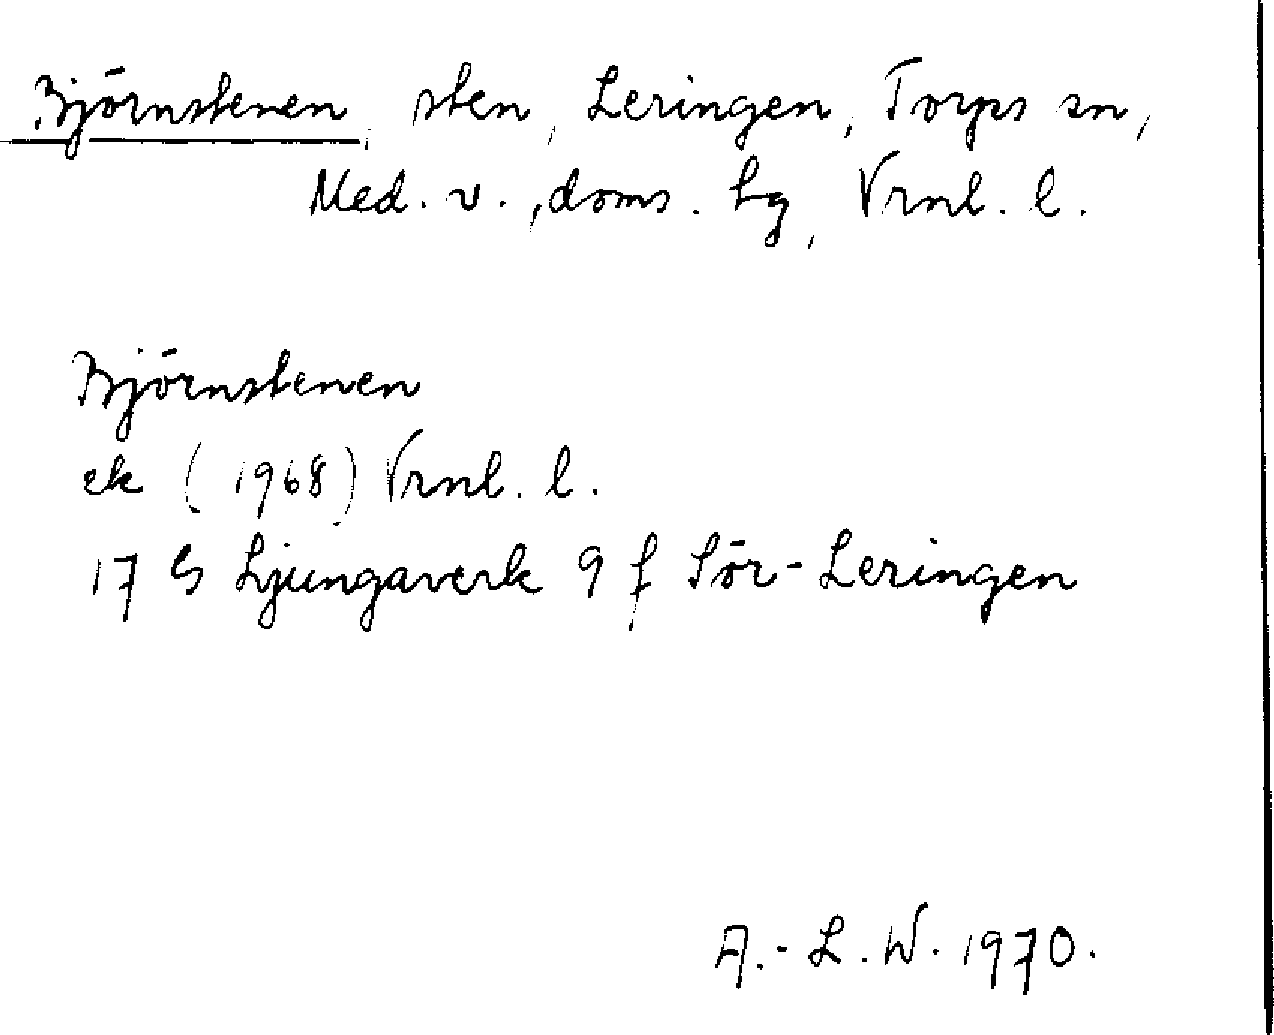 Björnstenen, sten, Leringen, Torps sn,
Med. v., doms. hg, Vrnl. l.
Björnstenen
ek (1968) Vrnl. l.
17 G Ljungaverk 9 f Sör-Leringen
A.-L.W. 1970.